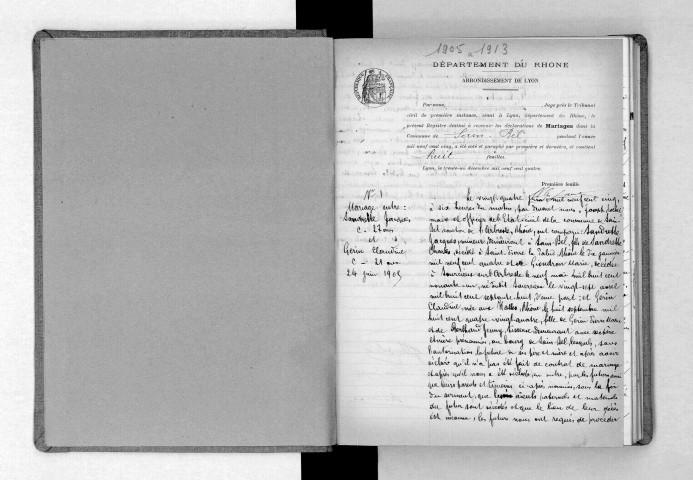 1905 a 1913
DÉPARTEMENT DU RHONE
ARRONDISSEMENT DE LYON
Par nous, Juge près le Tribunal
civil de première instance, séant à Lyon, département du Rhône, le
présent Registre destiné à recevoir les déclarations de Mariages dans la
Commune de Sain Bel pendant l'année
mil neuf cent cinq, a été coté et paraphé par première et dernière, et contient
huit feuilles.
Lyon, le trente-un décembre mil neuf cent quatre.
Première feuille
N° 1
Mariage entre
Sandrette Jacques
C - 27 ans
et
Gerin Claudine
C - 21 ans
24 juin 1905
Le vingt quatre juin mil neuf cent cinq,
à six heures du matin, par devant nous,
maire et officier de l'Etat civil de la commune de Sain
Bel canton de l'Arbresle, Rhône, ont comparu: Sandrette
Jacques, mineur, demeurant à Sain Bel, fils de Sandrette
Charles, décédé à Saint Pierre la Palud, Rhône le dix janvier
mil neuf cent quatre et de Marie, décédée
à Sourcieux sur l'Arbresle le neuf mai mil huit cent
nonante un, né dudit Sourcieux le vingt sept avril
mil huit cent septante huit, d'une part; et Gerin
Claudine née aux Halles, Rhône le huit septembre mil
huit cent quatre vingt quatre, fille de Gerin Pierre
et de Jenny, demeurant avec ses père
et mère prénommés, au bourg de Sain Bel, lesquels, sous
l'autorisation la future de ses père et mère et après avoir
déclaré qu'il n'a pas été fait de contrat de mariage
et après qu'il nous a été déclaré, en outre, par les futurs ainsi
que leurs parents et témoins ci-après nommés, sous la foi
du serment, que les aïeuls paternels et maternels
du futur sont décédés et que le lieu de leur décès
est inconnu, les futurs nous ont requis de procéder